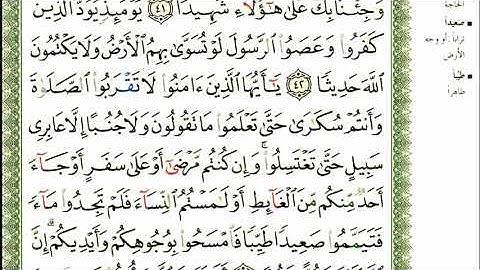 وَجِئْنَا بِكَ عَلَىٰ هَٰٓؤُلَآءِ شَهِيدًا ٤١ يَوْمَئِذٍ يَوَدُّ ٱلَّذِينَ
كَفَرُوا۟ وَعَصَوُا۟ ٱلرَّسُولَ لَوْ تُسَوَّىٰ بِهِمُ ٱلْأَرْضُ وَلَا يَكْتُمُونَ
ٱللَّهَ حَدِيثًا ٤٢ يَٰٓأَيُّهَا ٱلَّذِينَ ءَامَنُوا۟ لَا تَقْرَبُوا۟ ٱلصَّلَوٰةَ
وَأَنتُمْ سُكَٰرَىٰ حَتَّىٰ تَعْلَمُوا۟ مَا تَقُولُونَ وَلَا جُنُبًا إِلَّا عَابِرِى
سَبِيلٍ حَتَّىٰ تَغْتَسِلُوا۟ ۚ وَإِن كُنتُم مَّرْضَىٰٓ أَوْ عَلَىٰ سَفَرٍ أَوْ جَآءَ
أَحَدٌ مِّنكُم مِّنَ ٱلْغَآئِطِ أَوْ لَٰمَسْتُمُ ٱلنِّسَآءَ فَلَمْ تَجِدُوا۟ مَآءً
فَتَيَمَّمُوا۟ صَعِيدًا طَيِّبًا فَٱمْسَحُوا۟ بِوُجُوهِكُمْ وَأَيْدِيكُمْ ۗ إِنَّ
الحاجة
صعيداً
تراباً. أو وجه
الأرض
طيباً
طاهراً